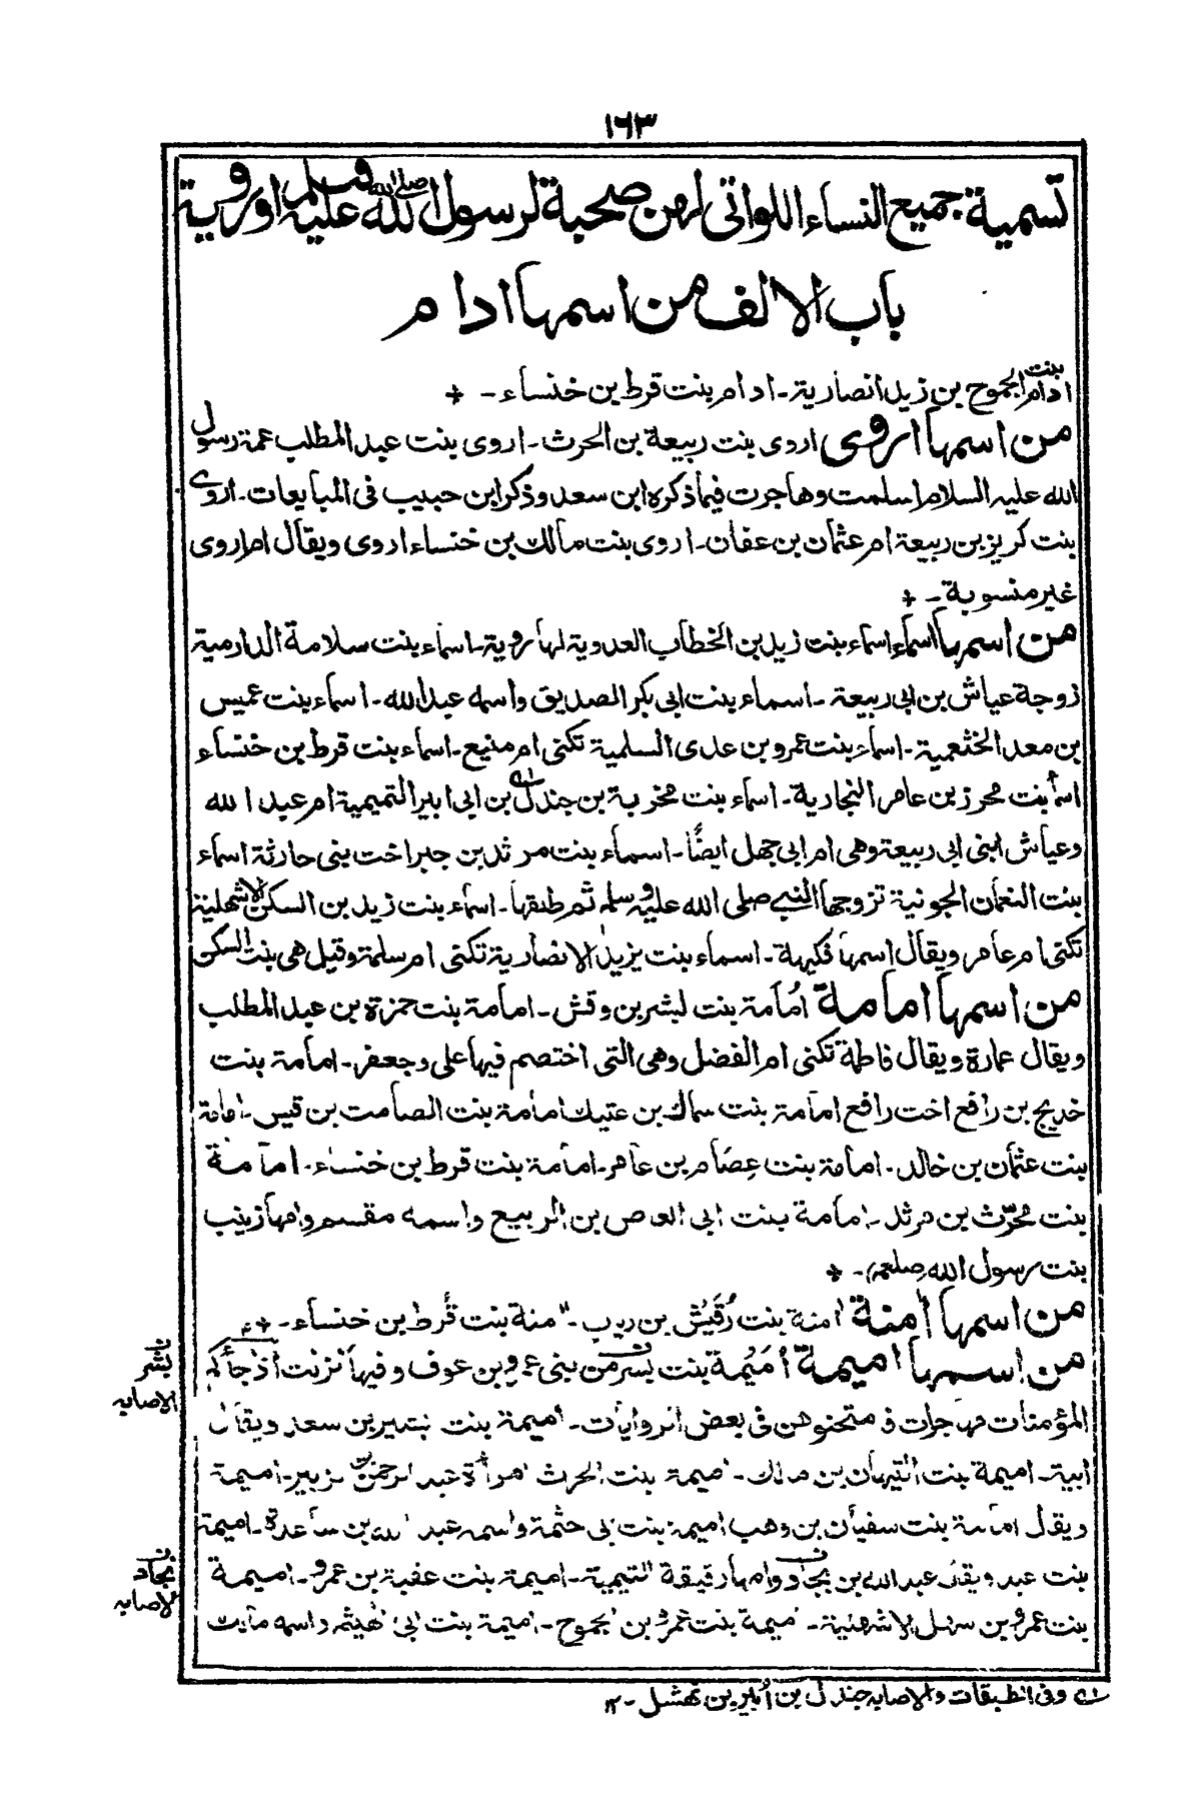 ١٦٣
تسمية جميع النساء اللواتى لهن صحبة لرسول الله صلى الله عليه وسلم او روية
باب الالف من اسمها ادام
ادام بنت الجموح بن زيد انصارية ـ ادام بنت قرط بن خنساء ـ +
من اسمها اروى اروى بنت ربيعة بن الحرث ـ اروى بنت عبد المطلب عمة رسول
الله عليه السلام اسلمت وهاجرت فيما ذكره ابن سعد وذكر ابن حبيب فى المبايعات ـ اروى
بنت كريز بن ربيعة ام عثمان بن عفان ـ اروى بنت مالك بن خنساء اروى ويقال ام اروى
غير منسوبة ـ +
من اسمها اسماء اسماء بنت زيد بن الخطاب العدوية لها روية ـ اسماء بنت سلامة الدارمية
زوجة عياش بن ابى ربيعة ـ اسماء بنت ابى بكر الصديق واسمه عبد الله ـ اسماء بنت عميس
بن معد الخثعمية ـ اسماء بنت عمرو بن عدى السلمية تكنى ام منيع ـ اسماء بنت قرط بن خنساء
اسماء بنت محرز بن عامر النجارية ـ اسماء بنت مخربة بن جندل بن ابى ابير التميمية ام عبد الله
وعياش ابنى ابى ربيعة وهى ام ابى جهل ايضًا ـ اسماء بنت مرثد بن جبر اخت بنى حارثة اسماء
بنت النعمان الجونية تزوجها النبى صلى الله عليه وسلم ثم طلقها ـ اسماء بنت زيد بن السكن الاشهلية
تكنى ام عامر ويقال اسمها فكيهة ـ اسماء بنت يزيد الانصارية تكنى ام سلمة وقيل هى بنت السكن
من اسمها امامة اُمامة بنت بشر بن وقش ـ امامة بنت حمزة بن عبد المطلب
ويقال عمارة ويقال فاطمة تكنى ام الفضل وهى التى اختصم فيها على وجعفر ـ امامة بنت
خديج بن رافع اخت رافع امامة بنت سماك بن عتيك امامة بنت الصامت بن قيس ـ امامة
بنت عثمان بن خالد ـ امامة بنت عصام بن عامر ـ امامة بنت قرط بن خنساء ـ امامة
بنت محرّث بن مرثد ـ امامة بنت ابى العاص بن الربيع واسمه مقسم وامها زينب
بنت رسول الله صلعم ـ +
من اسمها اٰمنة اٰمنة بنت رُقَيْش بن رياب ـ اٰمنة بنت قُرط بن خنساء ـ +
من اسمها اميمة اُمَيْمة بنت بشر من بنى عمرو بن عوف وفيها نزلت اذا جاءكم
المؤمنات مهاجرات فامتحنوهن فى بعض الروايات ـ اميمة بنت بشير بن سعد ويقال
ابية ـ اميمة بنت التيهان بن مالك ـ اميمة بنت الحرث امرأة عبد الرحمن بن زبير ـ اميمة
ويقال امامة بنت سفيان بن وهب اميمة بنت ابى حثمة واسمه عبد الله بن ساعدة ـ اميمة
بنت عبد ويقال عبد الله بن بجاد وامها رقيقة التيمية ـ اميمة بنت عقبة بن عمرو ـ اميمة
بنت عمرو بن سهل الاشهلية ـ اميمة بنت عمرو بن الجموح ـ اميمة بنت ابى الهيثم واسمه مالك
بشر
الاصابه
بجاد
الاصابه
وفى الطبقات والاصابه جندل بن اُبير بن نهشل ـ ١٢